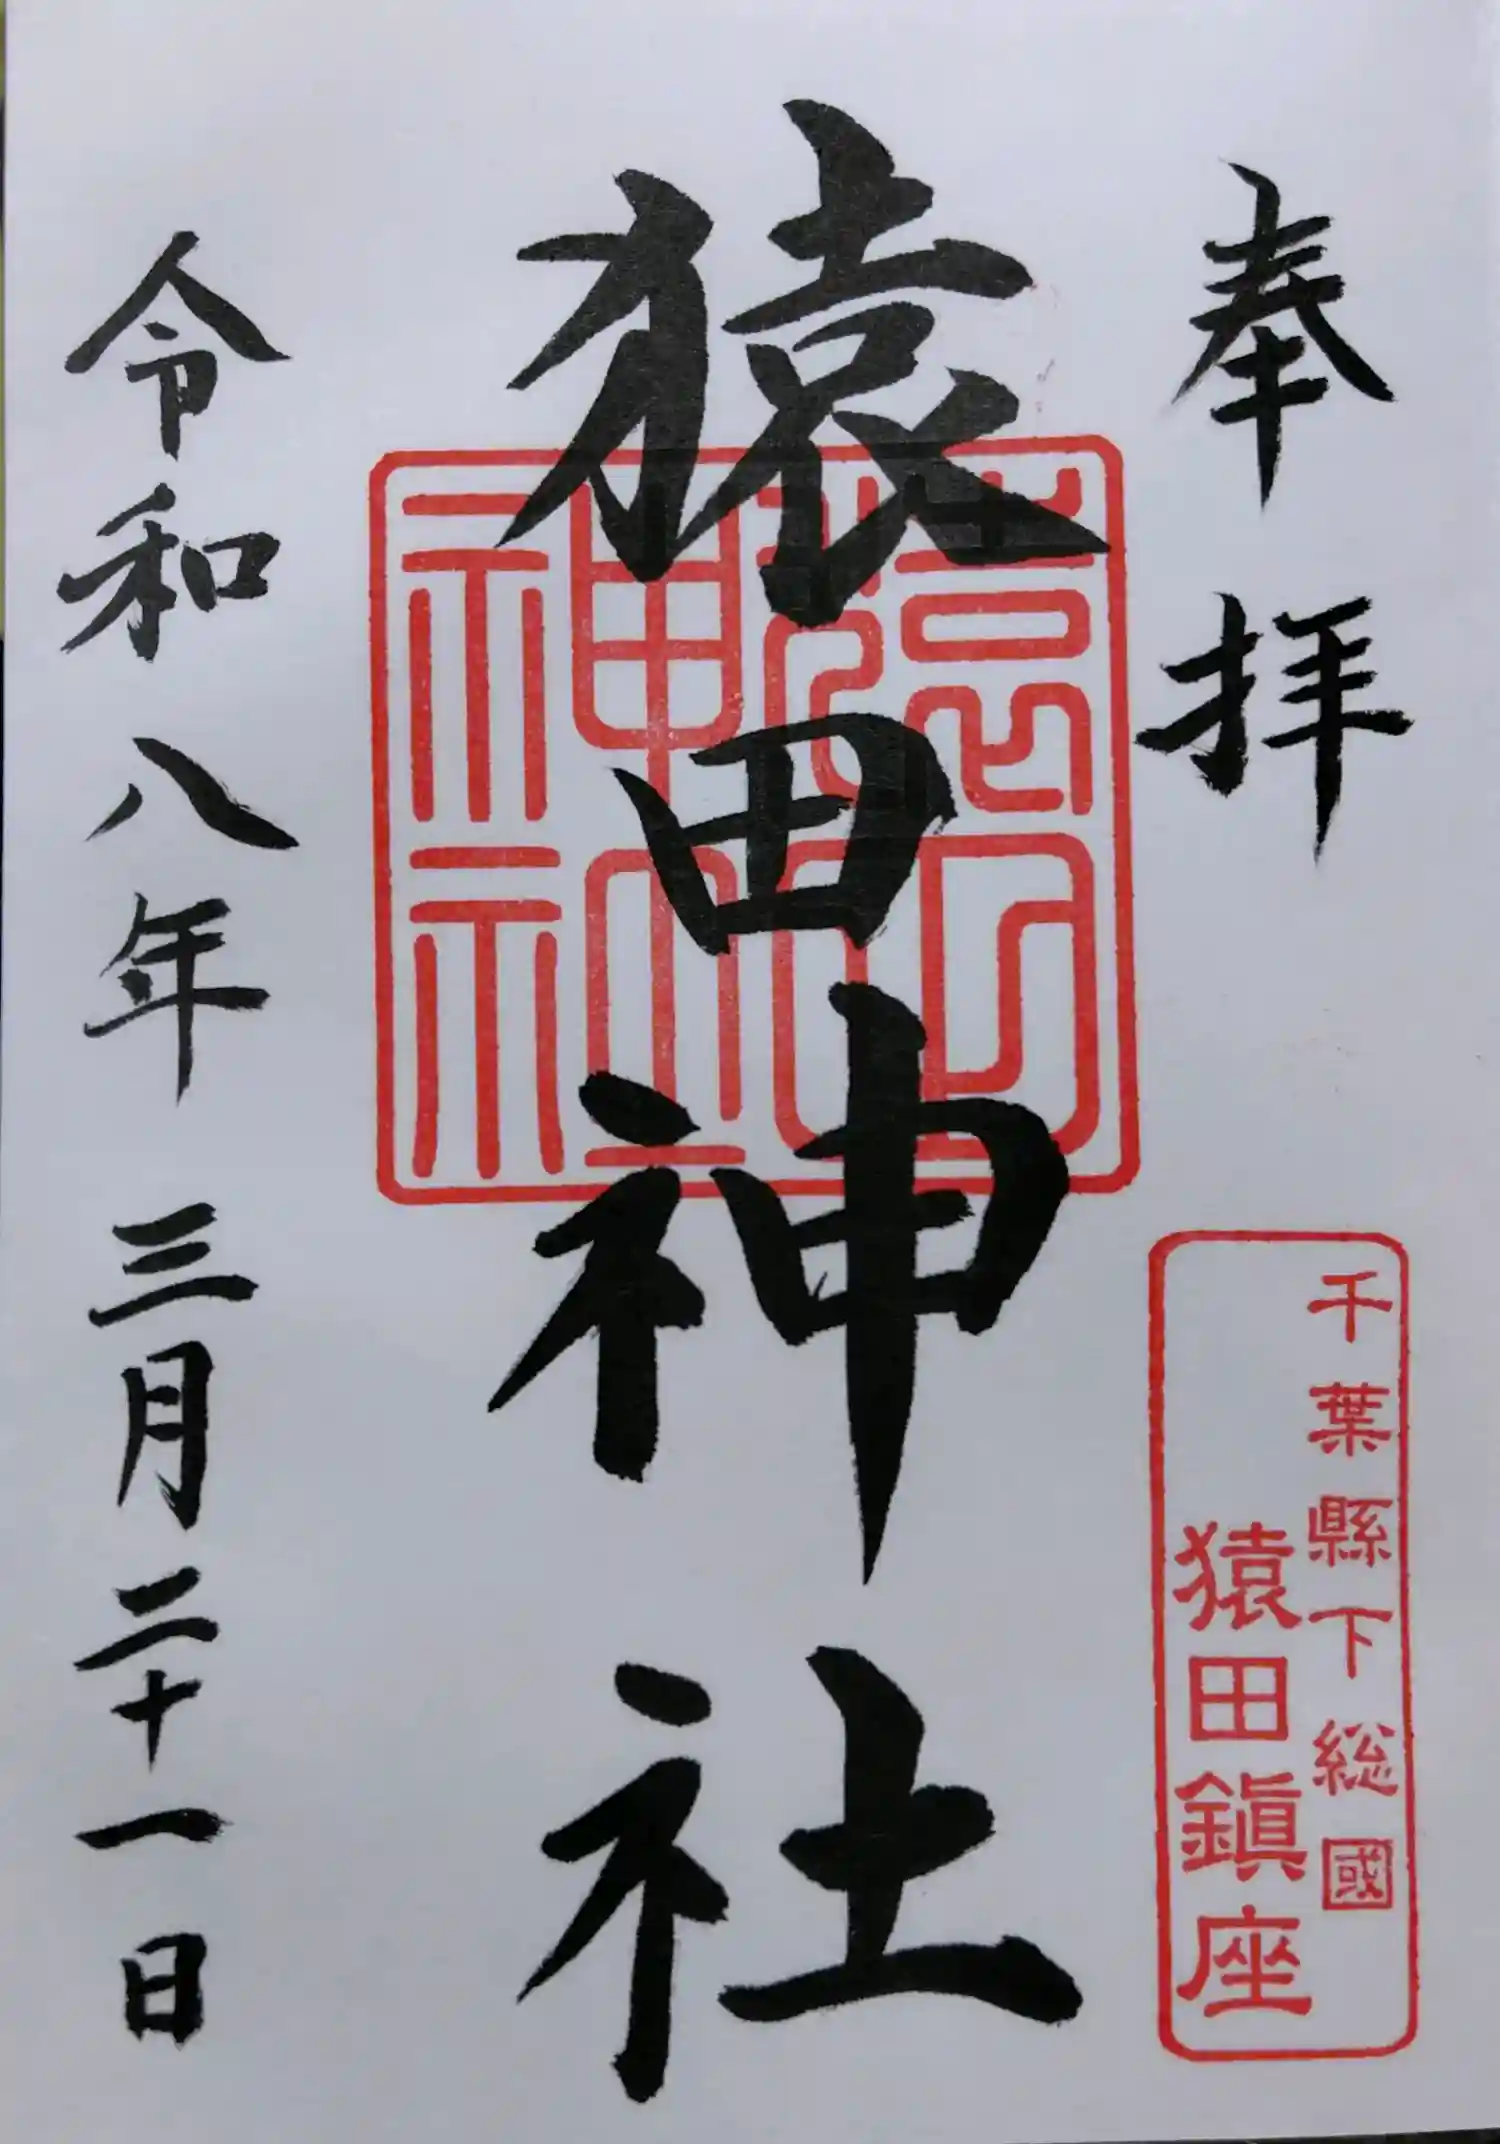 奉拝
千葉縣下総國
猿田鎭座
猿田神社
猿田神社
令和八年三月二十一日